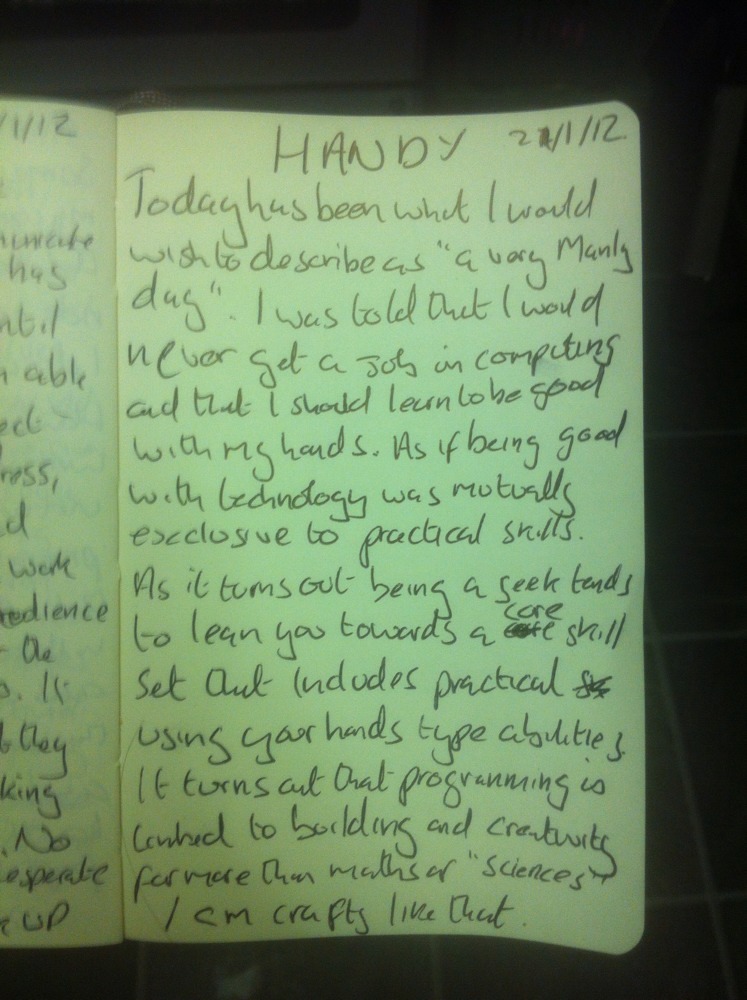 1/12
HANDY 21/1/12.
Today has been what I would
wish to describe as "a very Manly
day". I was told that I would
never get a job in computing
and that I should learn to be good
with my hands. As if being good
with technology was mutually
exclusive to practical skills.
As it turns out being a geek tends
to lean you towards a core skill
set that includes practical
using your hands type abilities.
It turns out that programming is
linked to building and creativity
far more than maths or "sciences"
I am crafty like that.
has
able
work
the
they
king
. No
UP